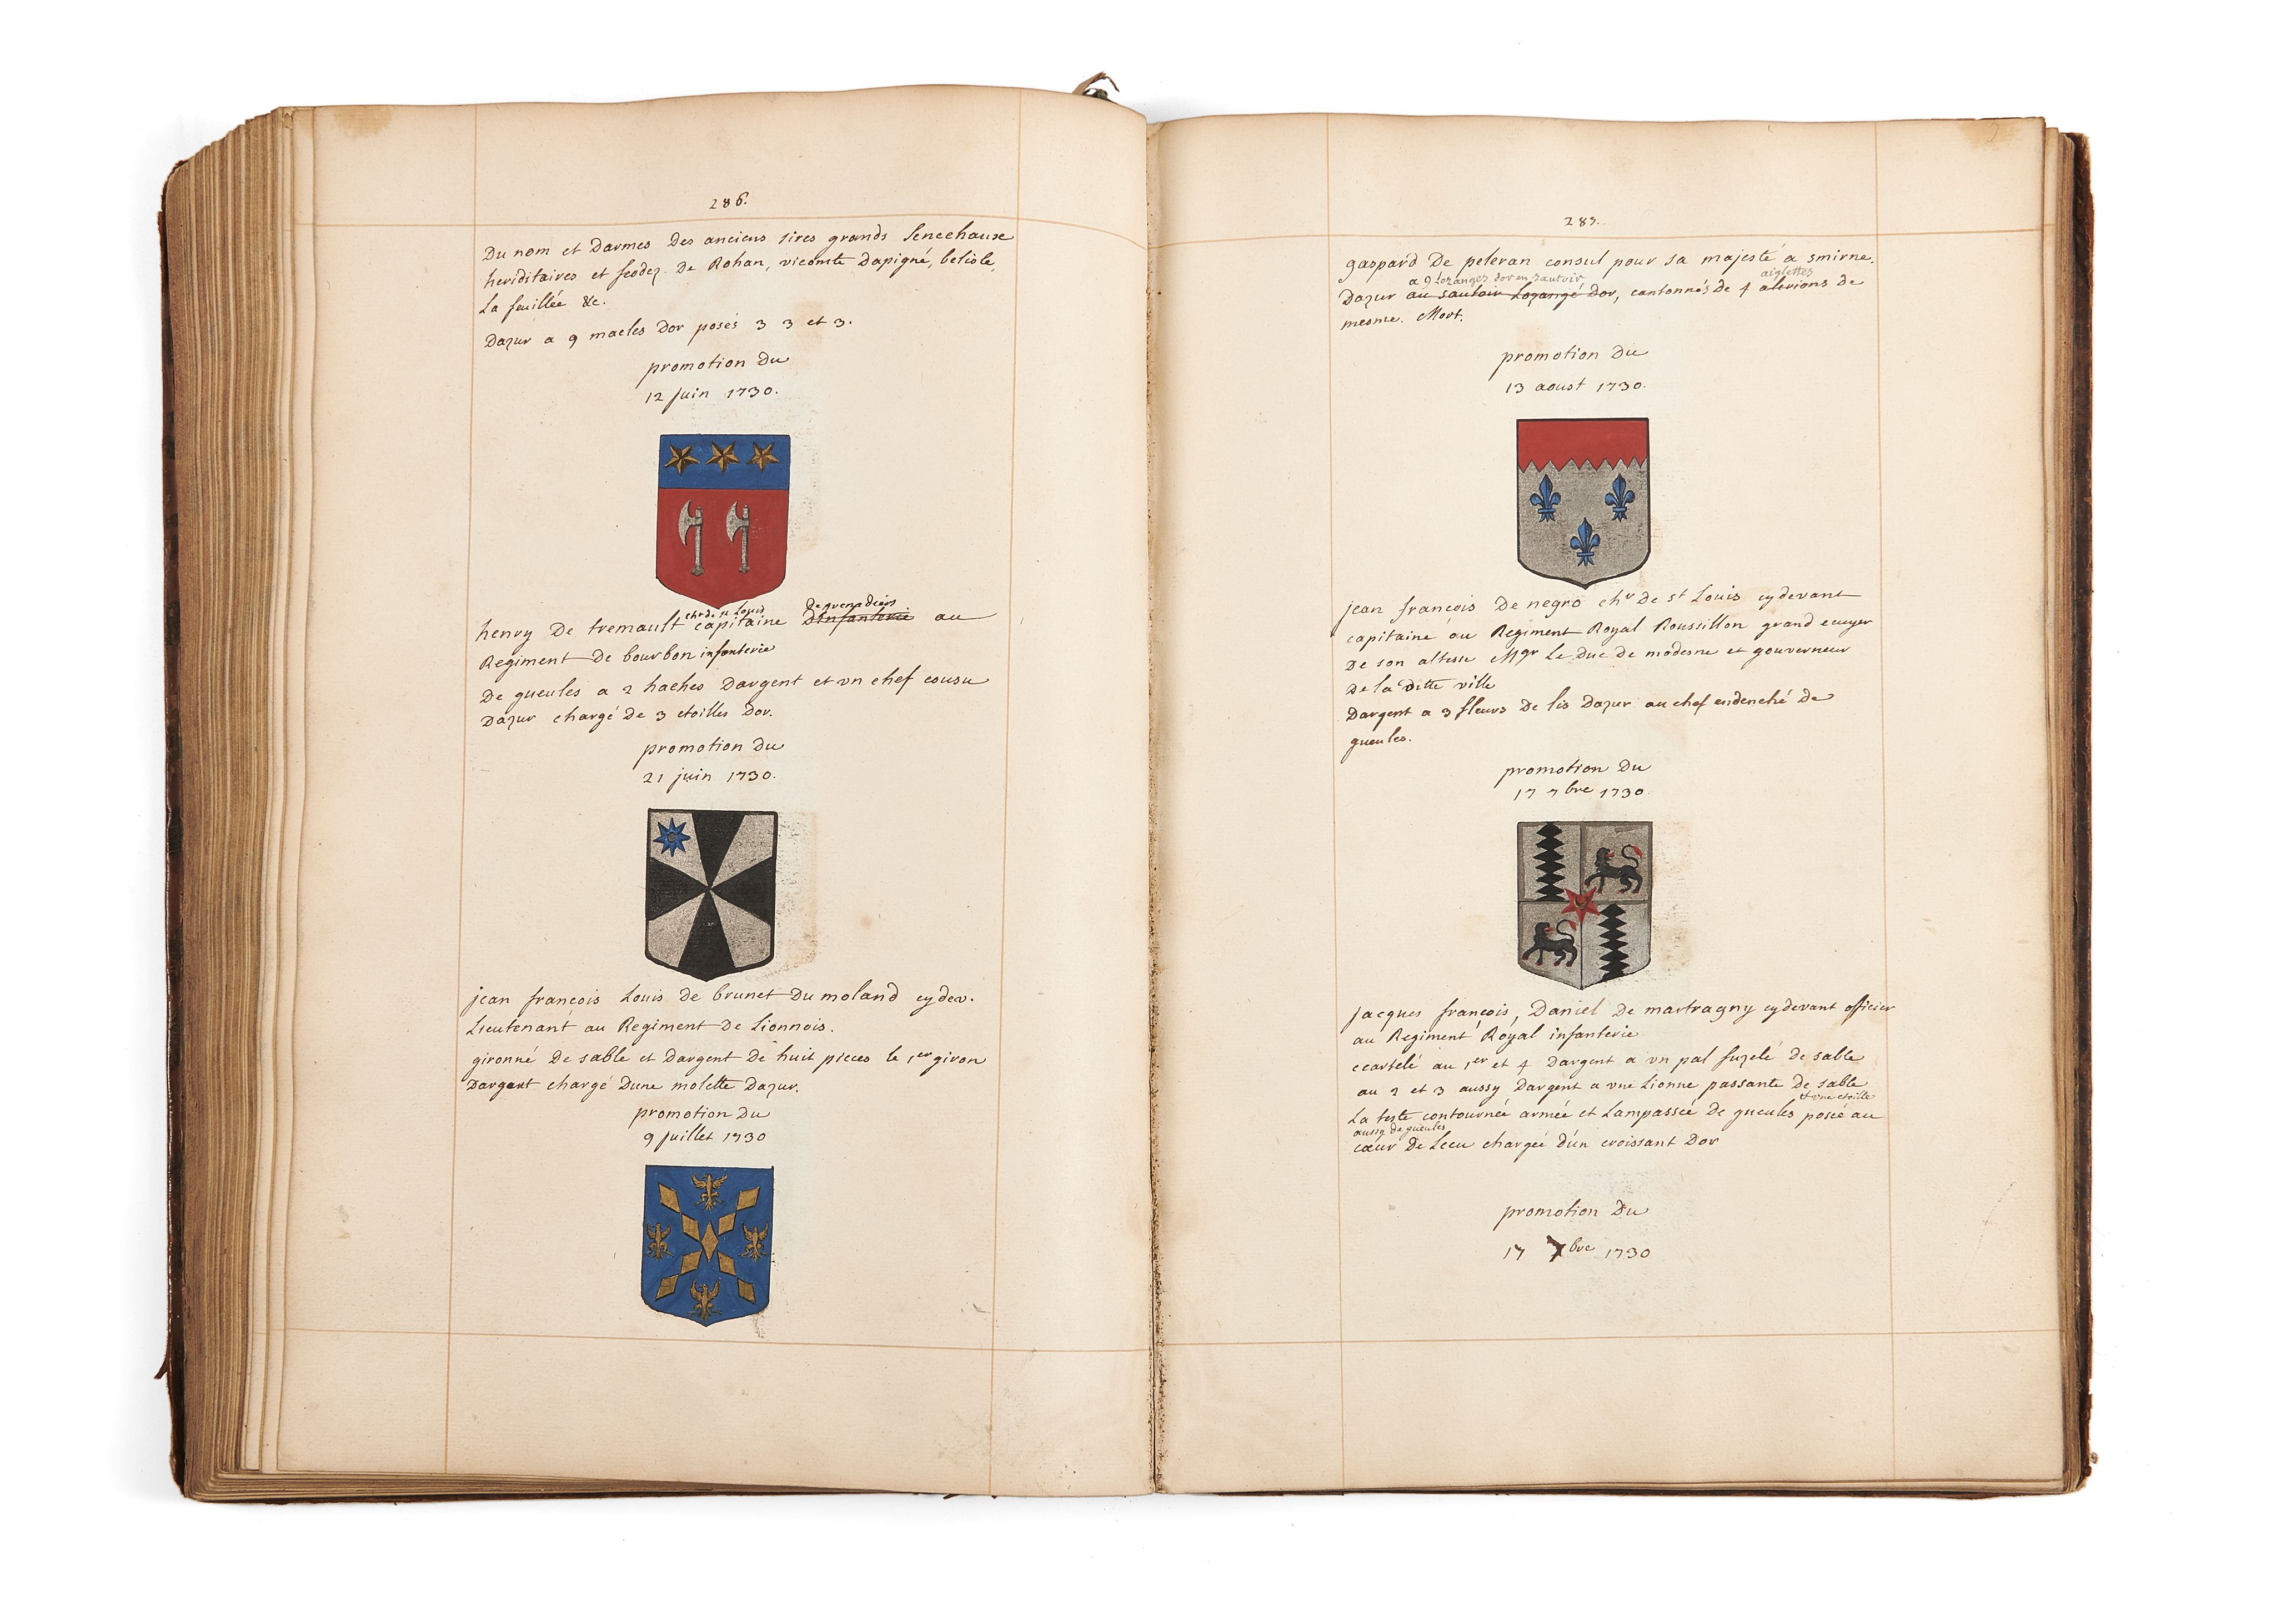 286.
Du nom et Darmes Des anciens sires grands Senechaux
heriditaires et feodez. De Rohan, vicomte Dapigné, belisle,
La feuillée &c.
Dazur a 9 macles Dor posés 3 3 et 3.
promotion Du
12 juin 1730.
chr de st Louis De grenadiers
henry De tremault capitaine Dinfanterie au
Regiment De bourbon infanterie
De gueules a 2 haches Dargent et vn chef cousu
Dazur chargé De 3 etoilles Dor.
promotion Du
21 juin 1730.
jean francois Louis de brunet Du moland cydev.
Lieutenant au Regiment De Lionnois.
gironné De sable et Dargent De huit pieces le 1er giron
Dargent chargé Dune molette Dazur.
promotion Du
9 juillet 1730
287.
gaspard De peleran consul pour sa majesté a smirne.
a 9 lozanges dor en sautoir aiglettes
Dazur au sautoir Lozangé Dor, cantonnés De 4 alerions De
mesme. Mort.
promotion Du
13 aoust 1730.
jean francois De negro chr De st Louis cydevant
capitaine au Regiment Royal Roussillon grand ecuyer
De son altesse Mgr Le Duc De modesne et gouverneur
De la Ditte ville
Dargent a 3 fleurs De lis Dazur au chef endenché De
gueules.
promotion Du
17 7bre 1730
jacques francois, Daniel De martragny cydevant officier
au Regiment Royal infanterie
ecartelé au 1er et 4 Dargent a vn pal fuzelé De sable
au 2 et 3 aussy Dargent a vne Lionne passante De sable
& vne etoille
La teste contournée armée et Lampassée De gueules posée au
aussy de gueules
cœur De Lecu chargée D'un croissant Dor
promotion Du
17 7bre 1730